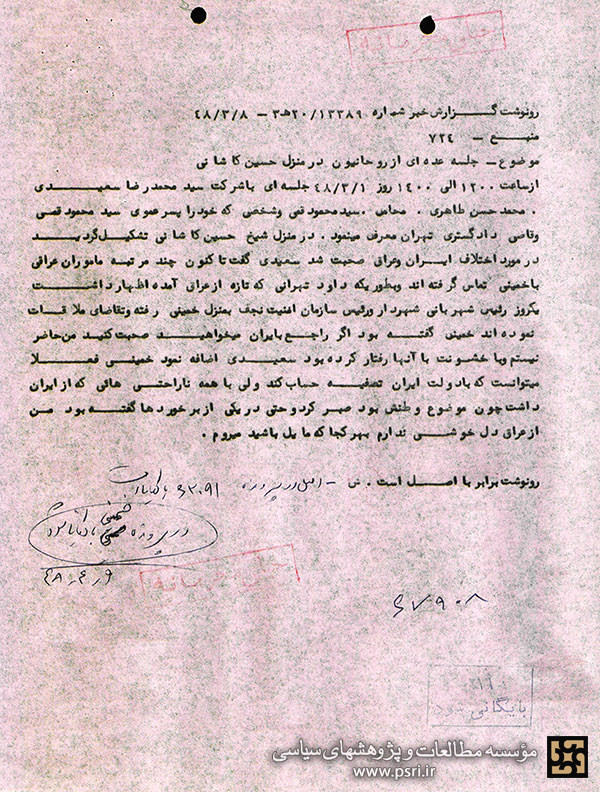 خیلی محرمانه
رونوشت گزارش خبر شماره ۲۰/۱۳۳۸۹ﻫ۳ - ۴۸/۳/۸
منبع - ۷۲۴
موضوع - جلسه عده ای از روحانیون در منزل حسین کاشانی
از ساعت ۱۲۰۰ الی ۱۴۰۰ روز ۴۸/۳/۱ جلسه ای باشرکت سید محمد رضا سعیدی
، محمد حسن طاهری ، محامی ، سید محمود قمی وشخصی که خود را پسر عموی سید محمود قمی
وقاضی دادگستری تهران معرفی مینمود ، در منزل شیخ حسین کاشانی تشکیل گردید
در مورد اختلاف ایران وعراق صحبت شد سعیدی گفت تا کنون چند مرتبه ماموران عراقی
باخمینی تماس گرفته اند وبطوریکه داود تهرانی که تازه از عراق آمده اظهار داشت
یکروز رئیس شهربانی شهردار ورئیس سازمان امنیت نجف بمنزل خمینی رفته وتقاضای ملاقات
نموده اند خمینی گفته بود اگر راجع بایران میخواهید صحبت کنید من حاضر
نیستم وبا خشونت با آنها رفتار کرده بود سعیدی اضافه نمود خمینی فعلا
میتوانست که بادولت ایران تصفیه حساب کند ولی با همه ناراحتی هائی که از ایران
داشت چون موضوع وطنش بود صبر کرد و حتی در یکی از برخوردها گفته بود من
از عراق دل خوشی ندارم بهر کجا که مایل باشید میروم .
رونوشت برابر با اصل است . ش - اصل در پرونده ۶۲۰۹۱ بایگانی است
در پرونده خمینی بایگانی شود
۴۸/۴/۹
۶۷۹۰۸
بایگانی شود
مؤسسه مطالعات و پژوهشهای سیاسی
www.psri.ir